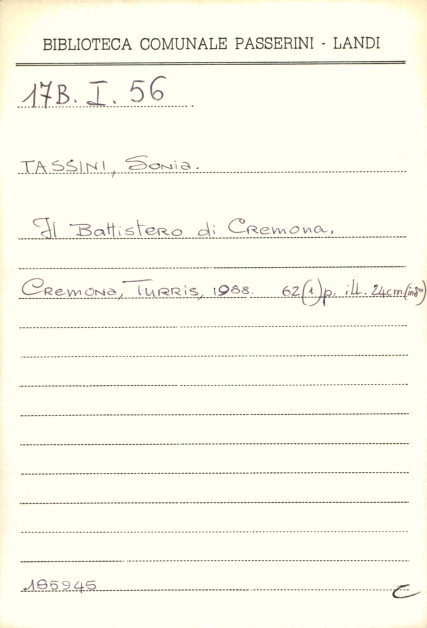 BIBLIOTECA COMUNALE PASSERINI - LANDI
17B. I. 56
TASSINI, Sonia.
Il Battistero di Cremona.
Cremona, Turris, 1988. 62(1)p. ill. 24cm (in8°)
185945 C